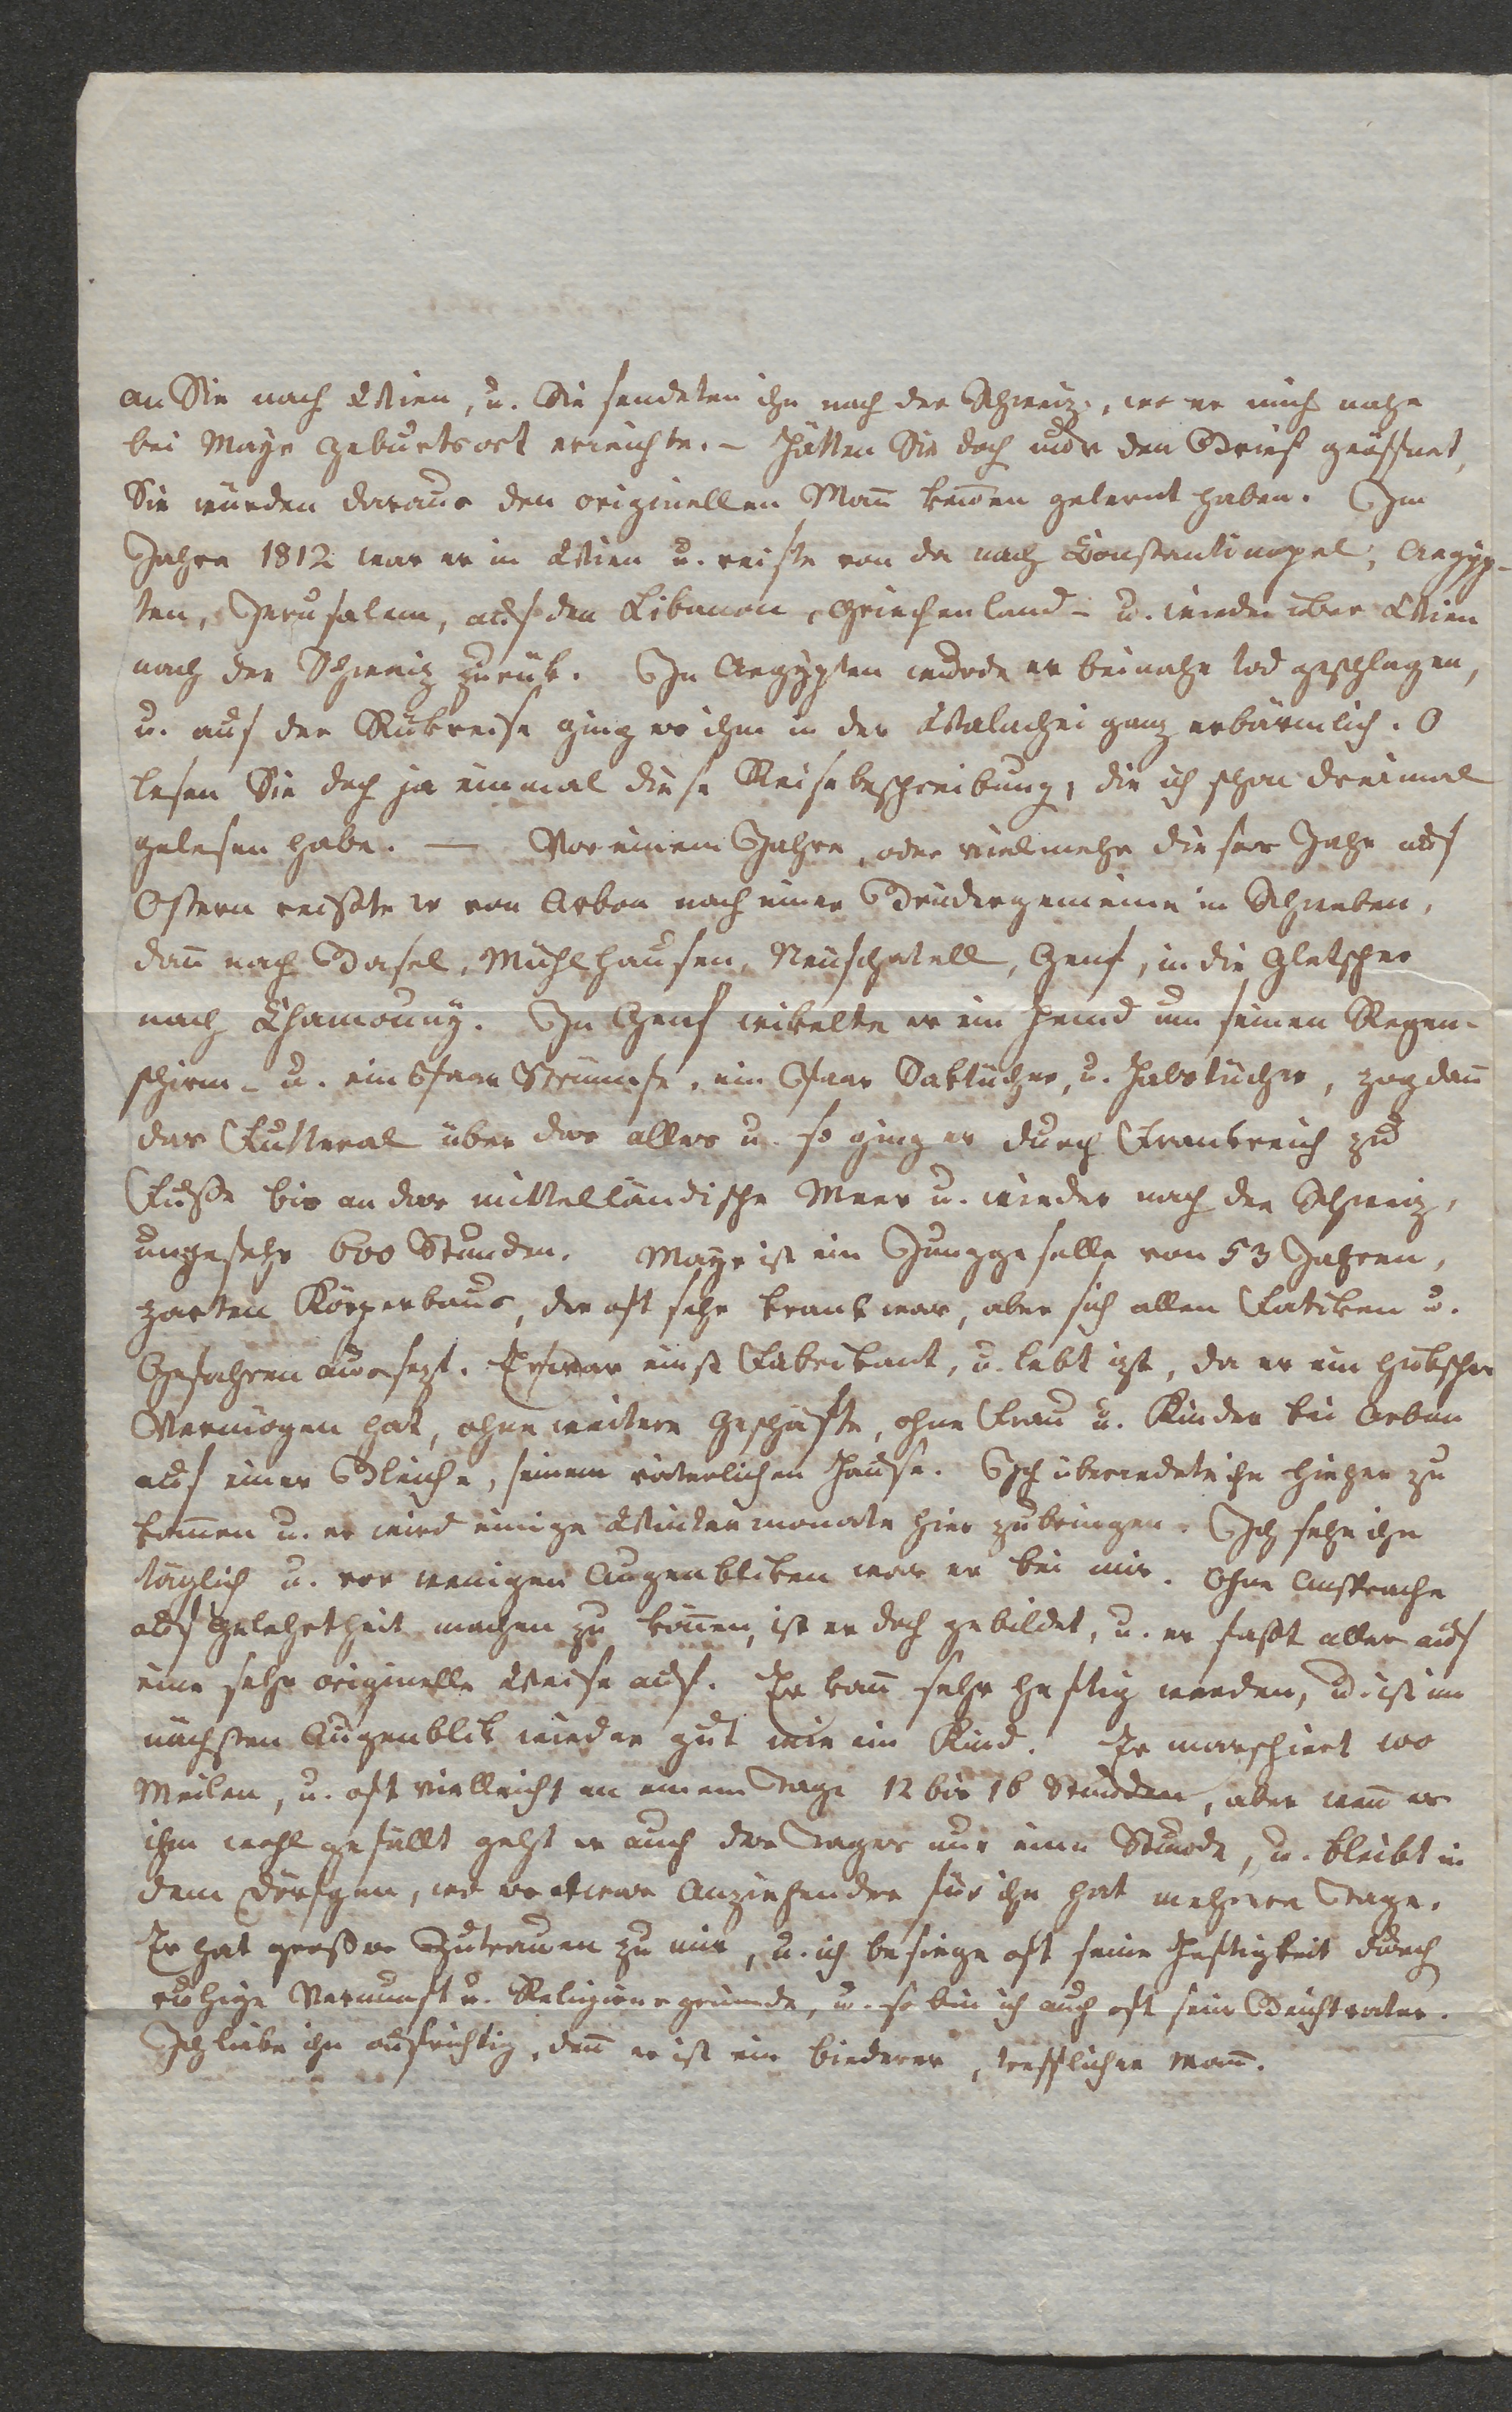 an Sie nach Wien, u. Sie sendeten ihn nach der Schweiz, wo er mich nahe
bei Mayr Geburtsort erreichte. – Hätten Sie doch nur den Brief geöffnet,
Sie würden daraus den originellen Mañ keñen gelernt haben. Im
Jahre 1812 war er in Wien u. reiste von da nach Constantinopel, Aegyp-
ten, Jerusalem, auf den Libanon, Griechenland – u. wieder über Wien
nach der Schweiz zurük. In Aegypten wurde er beinahe tod geschlagen,
u. auf der Rükreise ging es ihm in der Walachei ganz erbärmlich. O
lesen Sie doch ja einmal diese Reisebeschreibung, die ich schon dreimal
gelesen habe. — Vor einem Jahre, oder vielmehr dieses Jahr auf
Ostern reißte er von Arbon nach einer Brüdergemeine in Schwaben,
dañ nach Basel, Mühlhausen, Neuschatell, Genf, in die Gletscher
nach Chamouny. In Genf wikelte er ein Hemd um seinen Regen-
schirm – u. ein Paar Strümpfe, ein Paar Saktücher, u. Halstücher, zog dañ
das Futteral über das alles u. so ging er durch Frankreich zu
Fuße bis an das mittelländische Meer u. wieder nach der Schweiz,
ungefehr 600 Stunden. Mayr ist ein Junggeselle von 53 Jahren,
zarten Körperbaus, der oft sehr krank war, aber sich allen Fatiken u.
Gefahren aussezt. Er war einst Fabrikant, u. lebt izt, da er ein hübsches
Vermögen hat, ohne weitere Geschäfte, ohne Frau u. Kinder bei Arbon
auf einer Bleiche, seinem väterlichen Hause. Ich überredete ihn hieher zu
kom̄en u. er wird einige Wintermonate hier zubringen. Ich sehe ihn
täglich u. vor wenigen Augenbliken war er bei mir. Ohne Ansprache
auf Gelehrtheit machen zu köñen, ist er doch gebildet, u. er faßt alles auf
eine sehr originelle Weise auf. Er kañ sehr heftig werden, u. ist im
nächsten Augenblik wieder gut wie ein Kind. Er marschiert 100
Meilen, u. oft vielleicht an einem Tage 12 bis 16 Stunden, aber weñ es
ihm wohl gefällt geht er auch des Tages nur eine Stunde, u. bleibt in
dem Dörfgen, wo es etwas Anziehendes für ihn hat mehrere Tage.
Er hat großes Zutrauen zu mir, u. ich besiege oft seine Heftigkeit durch
ruhige Vernunft u. Religionsgründe, u. so bin ich auch oft sein Beichtvater.
Ich liebe ihn aufrichtig, deñ er ist ein biederer, trefflicher Mañ.